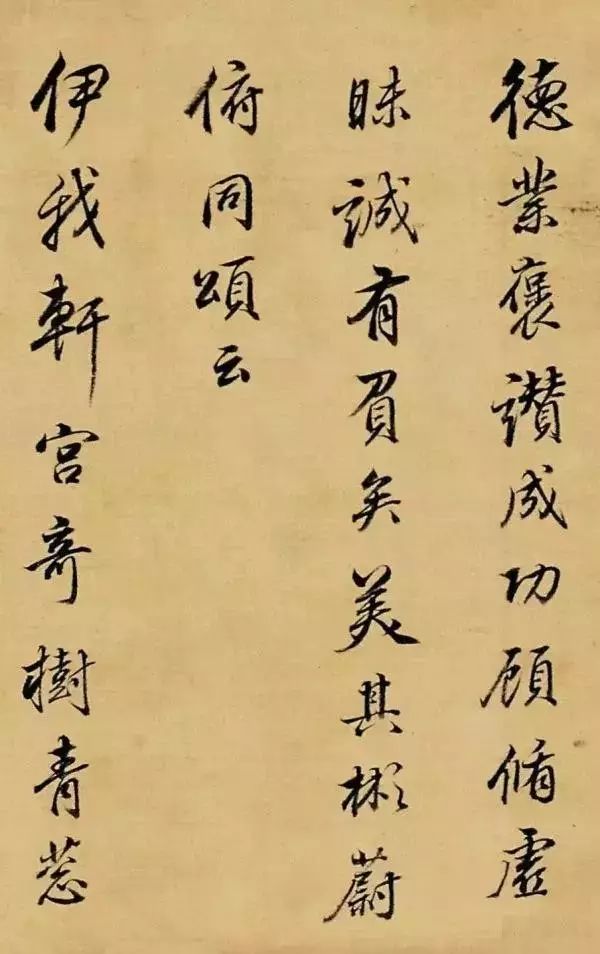 德業褒讚成功顧脩虛
昧誠有負矣美其彬蔚
俯同頌云
伊我軒宮奇樹青葱